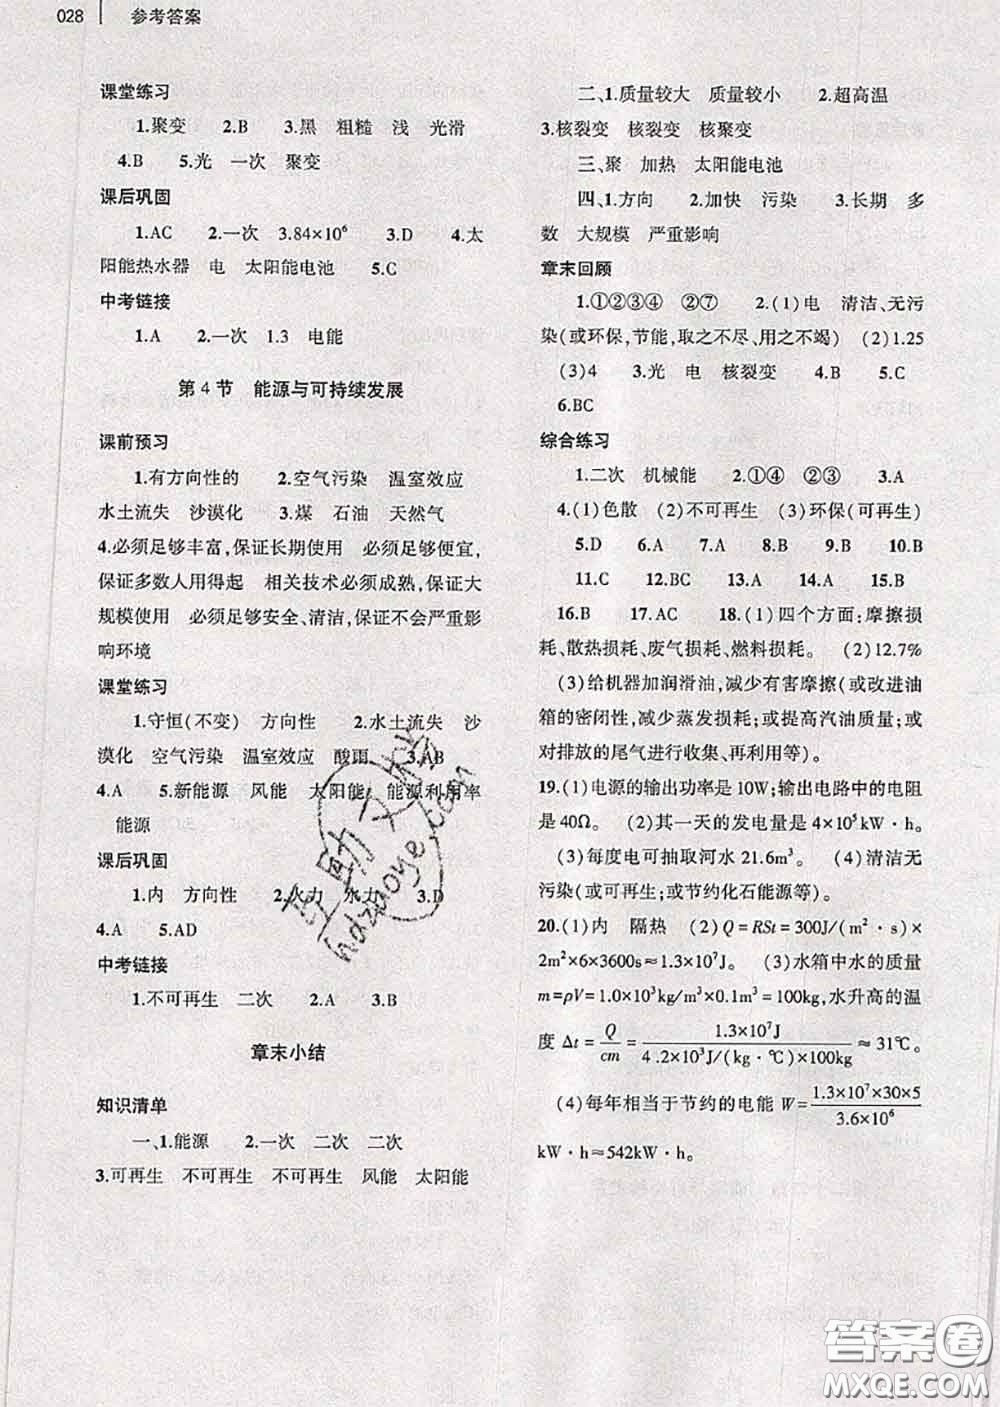 028 参考答案
课堂练习
1.聚变 2.B 3.黑 粗糙 浅 光滑
4.B 5.光 一次 聚变
课后巩固
1.AC 2.一次 3.84×10⁶ 3.D 4.太
阳能热水器 电 太阳能电池 5.C
中考链接
1.A 2.一次 1.3 电能
第4节 能源与可持续发展
课前预习
1.有方向性的 2.空气污染 温室效应
水土流失 沙漠化 3.煤 石油 天然气
4.必须足够丰富,保证长期使用 必须足够便宜,
保证多数人用得起 相关技术必须成熟,保证大
规模使用 必须足够安全、清洁,保证不会严重影
响环境
课堂练习
1.守恒(不变) 方向性 2.水土流失 沙
漠化 空气污染 温室效应 酸雨 3.AB
4.A 5.新能源 风能 太阳能 能源利用率
能源
课后巩固
1.内 方向性 2.火力 水力 3.D
4.A 5.AD
中考链接
1.不可再生 二次 2.A 3.B
章末小结
知识清单
一、1.能源 2.一次 二次 二次
3.可再生 不可再生 不可再生 风能 太阳能
二、1.质量较大 质量较小 2.超高温
3.核裂变 核裂变 核聚变
三、聚 加热 太阳能电池
四、1.方向 2.加快 污染 3.长期 多
数 大规模 严重影响
章末回顾
1.①②③④ ②⑦ 2.(1)电 清洁、无污
染(或环保,节能,取之不尽、用之不竭) (2)1.25
(3)4 3.光 电 核裂变 4.B 5.C
6.BC
综合练习
1.二次 机械能 2.①④ ②③ 3.A
4.(1)色散 (2)不可再生 (3)环保(可再生)
5.D 6.A 7.A 8.B 9.B 10.B
11.C 12.BC 13.A 14.A 15.B
16.B 17.AC 18.(1)四个方面:摩擦损
耗、散热损耗、废气损耗、燃料损耗。 (2)12.7%
(3)给机器加润滑油,减少有害摩擦(或改进油
箱的密闭性,减少蒸发损耗;或提高汽油质量;或
对排放的尾气进行收集、再利用等)。
19.(1)电源的输出功率是10W;输出电路中的电阻
是40Ω。 (2)其一天的发电量是4×10⁵kW·h。
(3)每度电可抽取河水21.6m³。 (4)清洁无
污染(或可再生;或节约化石能源等)。
20.(1)内 隔热 (2)Q=RSt=300J/(m²·s)×
2m²×6×3600s≈1.3×10⁷J。 (3)水箱中水的质量
m=ρV=1.0×10³kg/m³×0.1m³=100kg,水升高的温
度Δt=Q/cm=1.3×10⁷J/4.2×10³J/(kg·℃)×100kg≈31℃。
(4)每年相当于节约的电能W=1.3×10⁷×30×5/3.6×10⁶
kW·h≈542kW·h。
互助文档
hdzuoye.com
答案圈
MXQE.COM